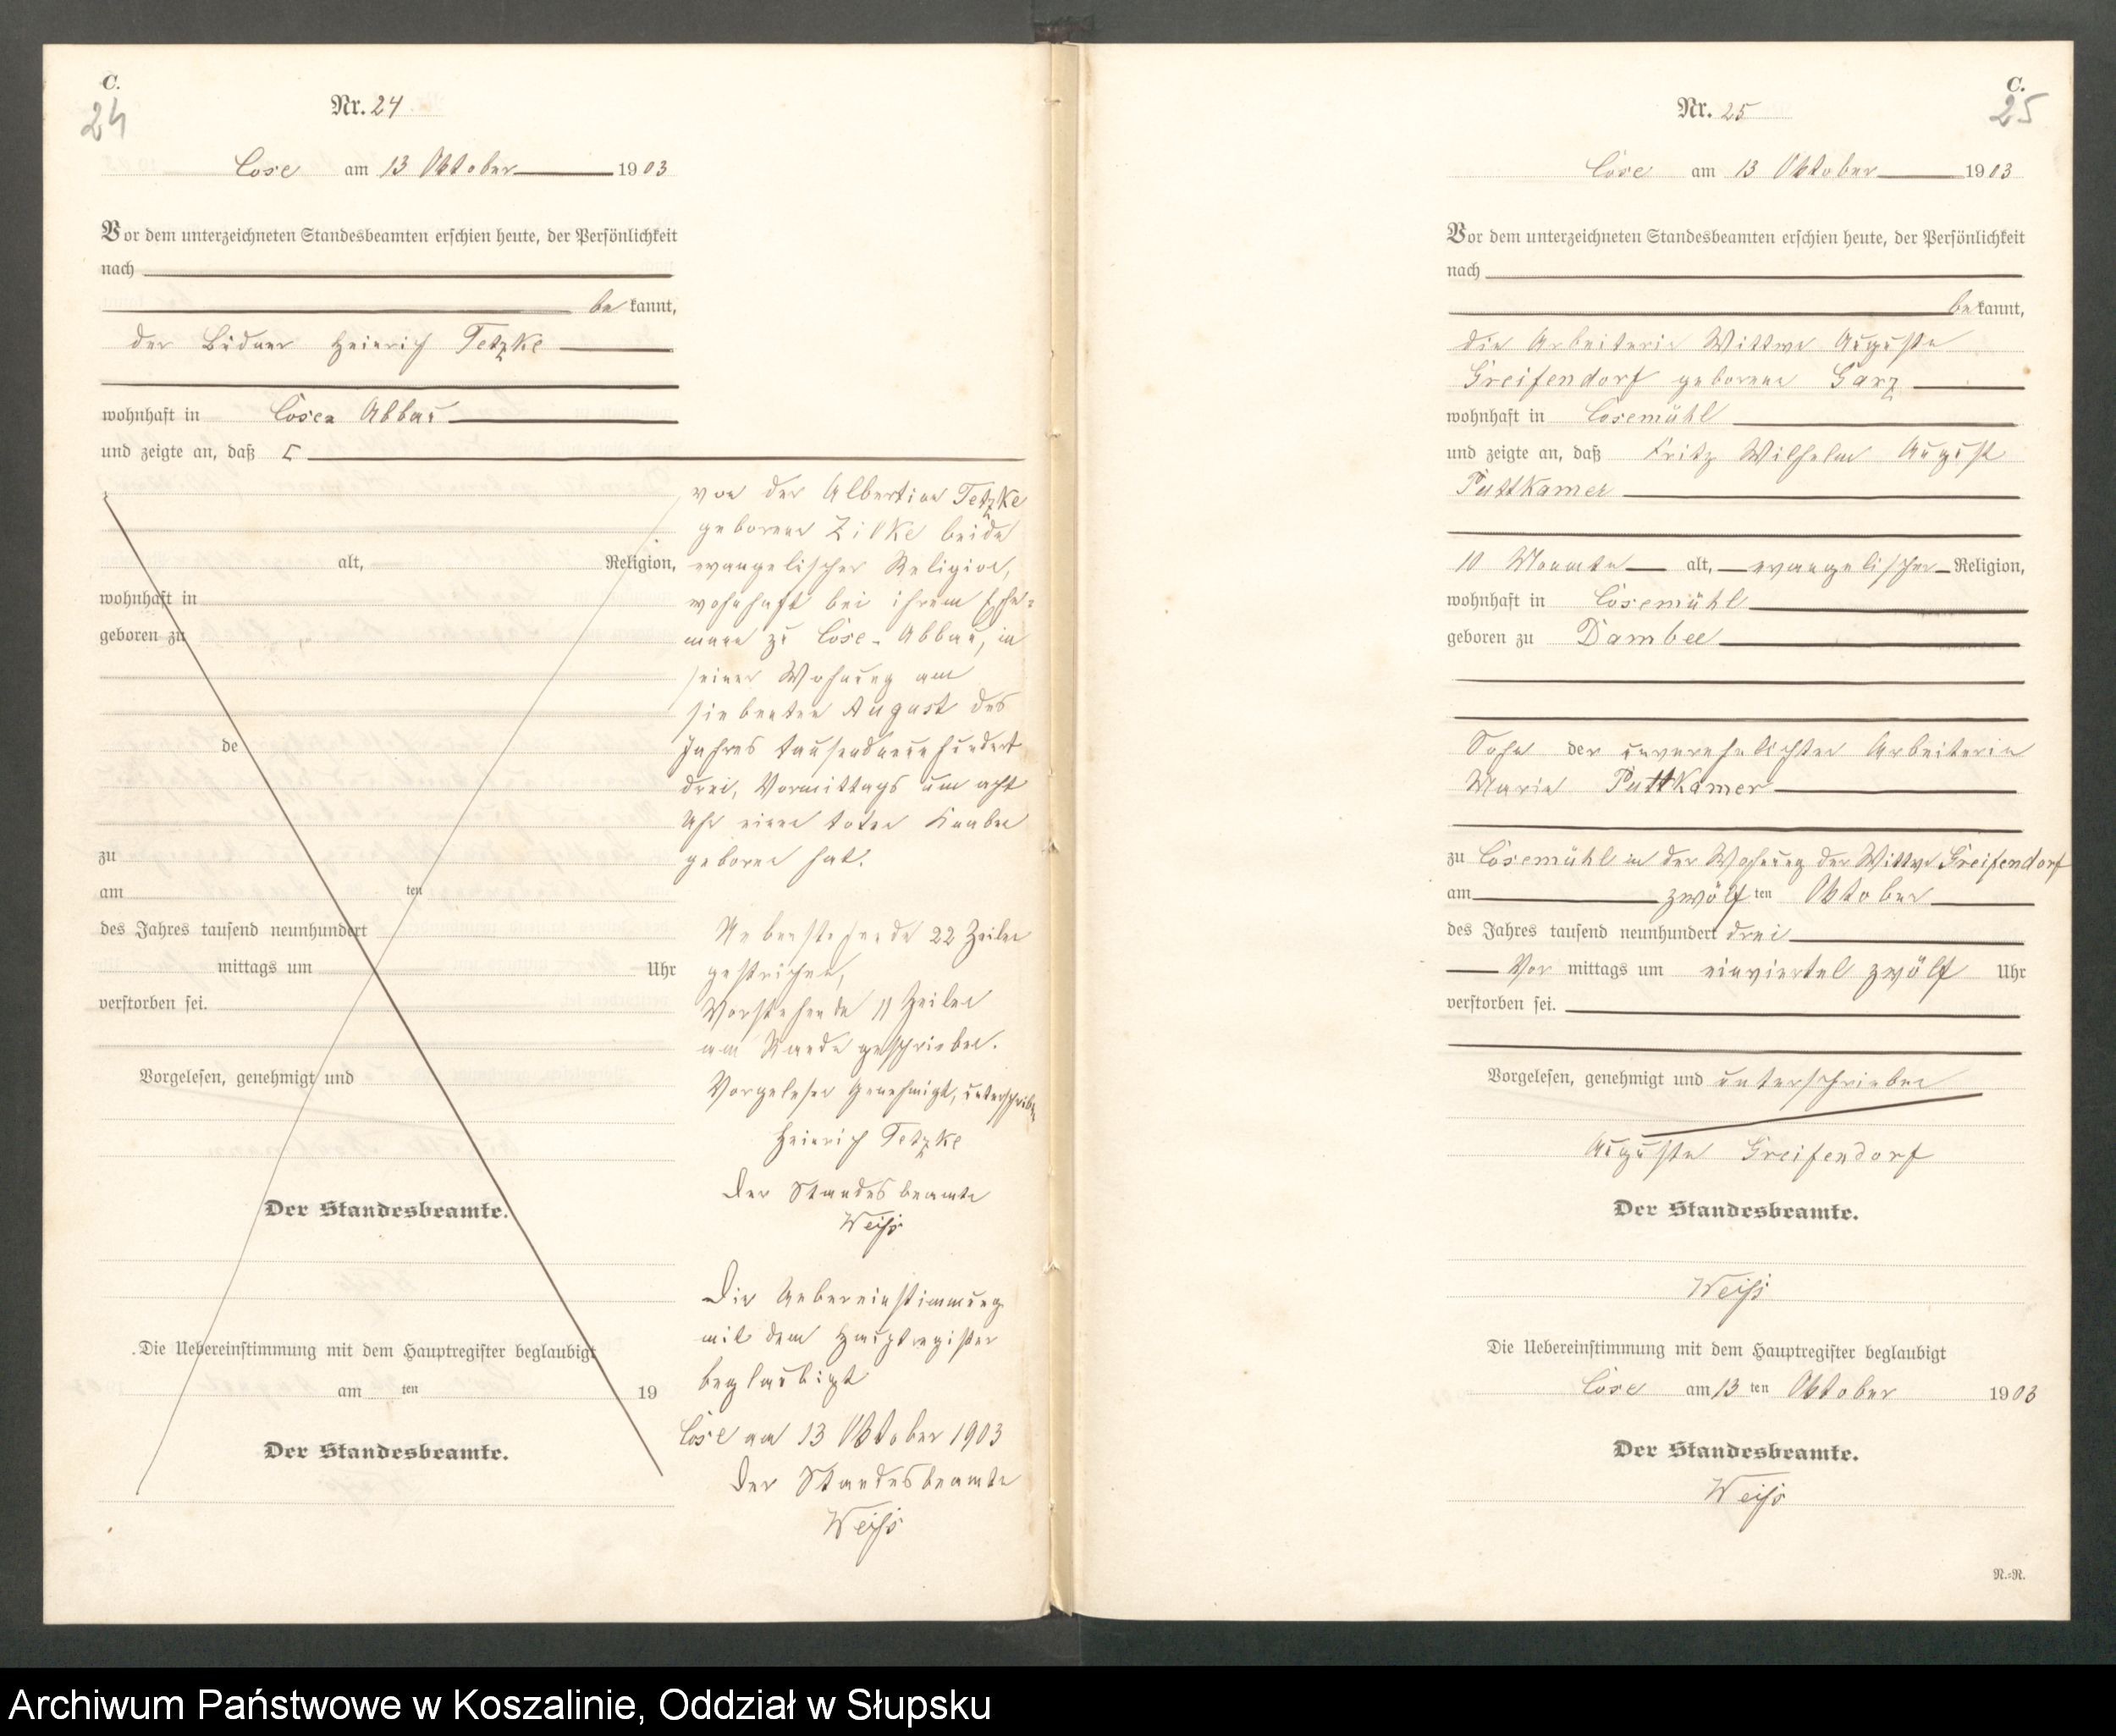 C.
24
Nr. 24
Cose am 13 Oktober 1903
Vor dem unterzeichneten Standesbeamten erschien heute, der Persönlichkeit
nach
be kannt,
der Büdner Heinrich Tetzke
wohnhaft in Cosen Abbau
und zeigte an, daß
alt, Religion,
wohnhaft in
geboren zu
de
zu
am ten
des Jahres tausend neunhundert
mittags um Uhr
verstorben sei.
Vorgelesen, genehmigt und
Der Standesbeamte.
Die Uebereinstimmung mit dem Hauptregister beglaubigt
am ten 19
Der Standesbeamte.
von der Albertine Tetzke
geborene Zilke beide
evangelischer Religion,
wohnhaft bei ihrem Ehe-
mann zu Cose-Abbau, in
seiner Wohnung am
siebenten August des
Jahres tausendneunhundert
drei, Vormittags um acht
Uhr einen toten Knaben
geboren hat.
Nebenstehende 22 Zeilen
gestrichen,
Vorstehende 11 Zeilen
am Rande geschrieben.
Vorgelesen Genehmigt, unterschrieben
Heinrich Tetzke
Der Standesbeamte
Weiß
Die Uebereinstimmung
mit dem Hauptregister
beglaubigt
Cose am 13 Oktober 1903
Der Standesbeamte
Weiß
C.
25
Nr. 25
Cose am 13 Oktober 1903
Vor dem unterzeichneten Standesbeamten erschien heute, der Persönlichkeit
nach
be kannt,
die Arbeiterin Wittwe Auguste
Greifendorf geborene Garz
wohnhaft in Cosemühl
und zeigte an, daß Fritz Wilhelm August
Puttkamer
10 Monate alt, evangelischer Religion,
wohnhaft in Cosemühl
geboren zu Dambee
Sohn der unverehelichten Arbeiterin
Marie Puttkamer
zu Cosemühl in der Wohnung der Wittwe Greifendorf
am zwölf ten Oktober
des Jahres tausend neunhundert drei
Vor mittags um einviertel zwölf Uhr
verstorben sei.
Vorgelesen, genehmigt und unterschrieben
Auguste Greifendorf
Der Standesbeamte.
Weiß
Die Uebereinstimmung mit dem Hauptregister beglaubigt
Cose am 13 ten Oktober 1903
Der Standesbeamte.
Weiß
N.=N.
Archiwum Państwowe w Koszalinie, Oddział w Słupsku